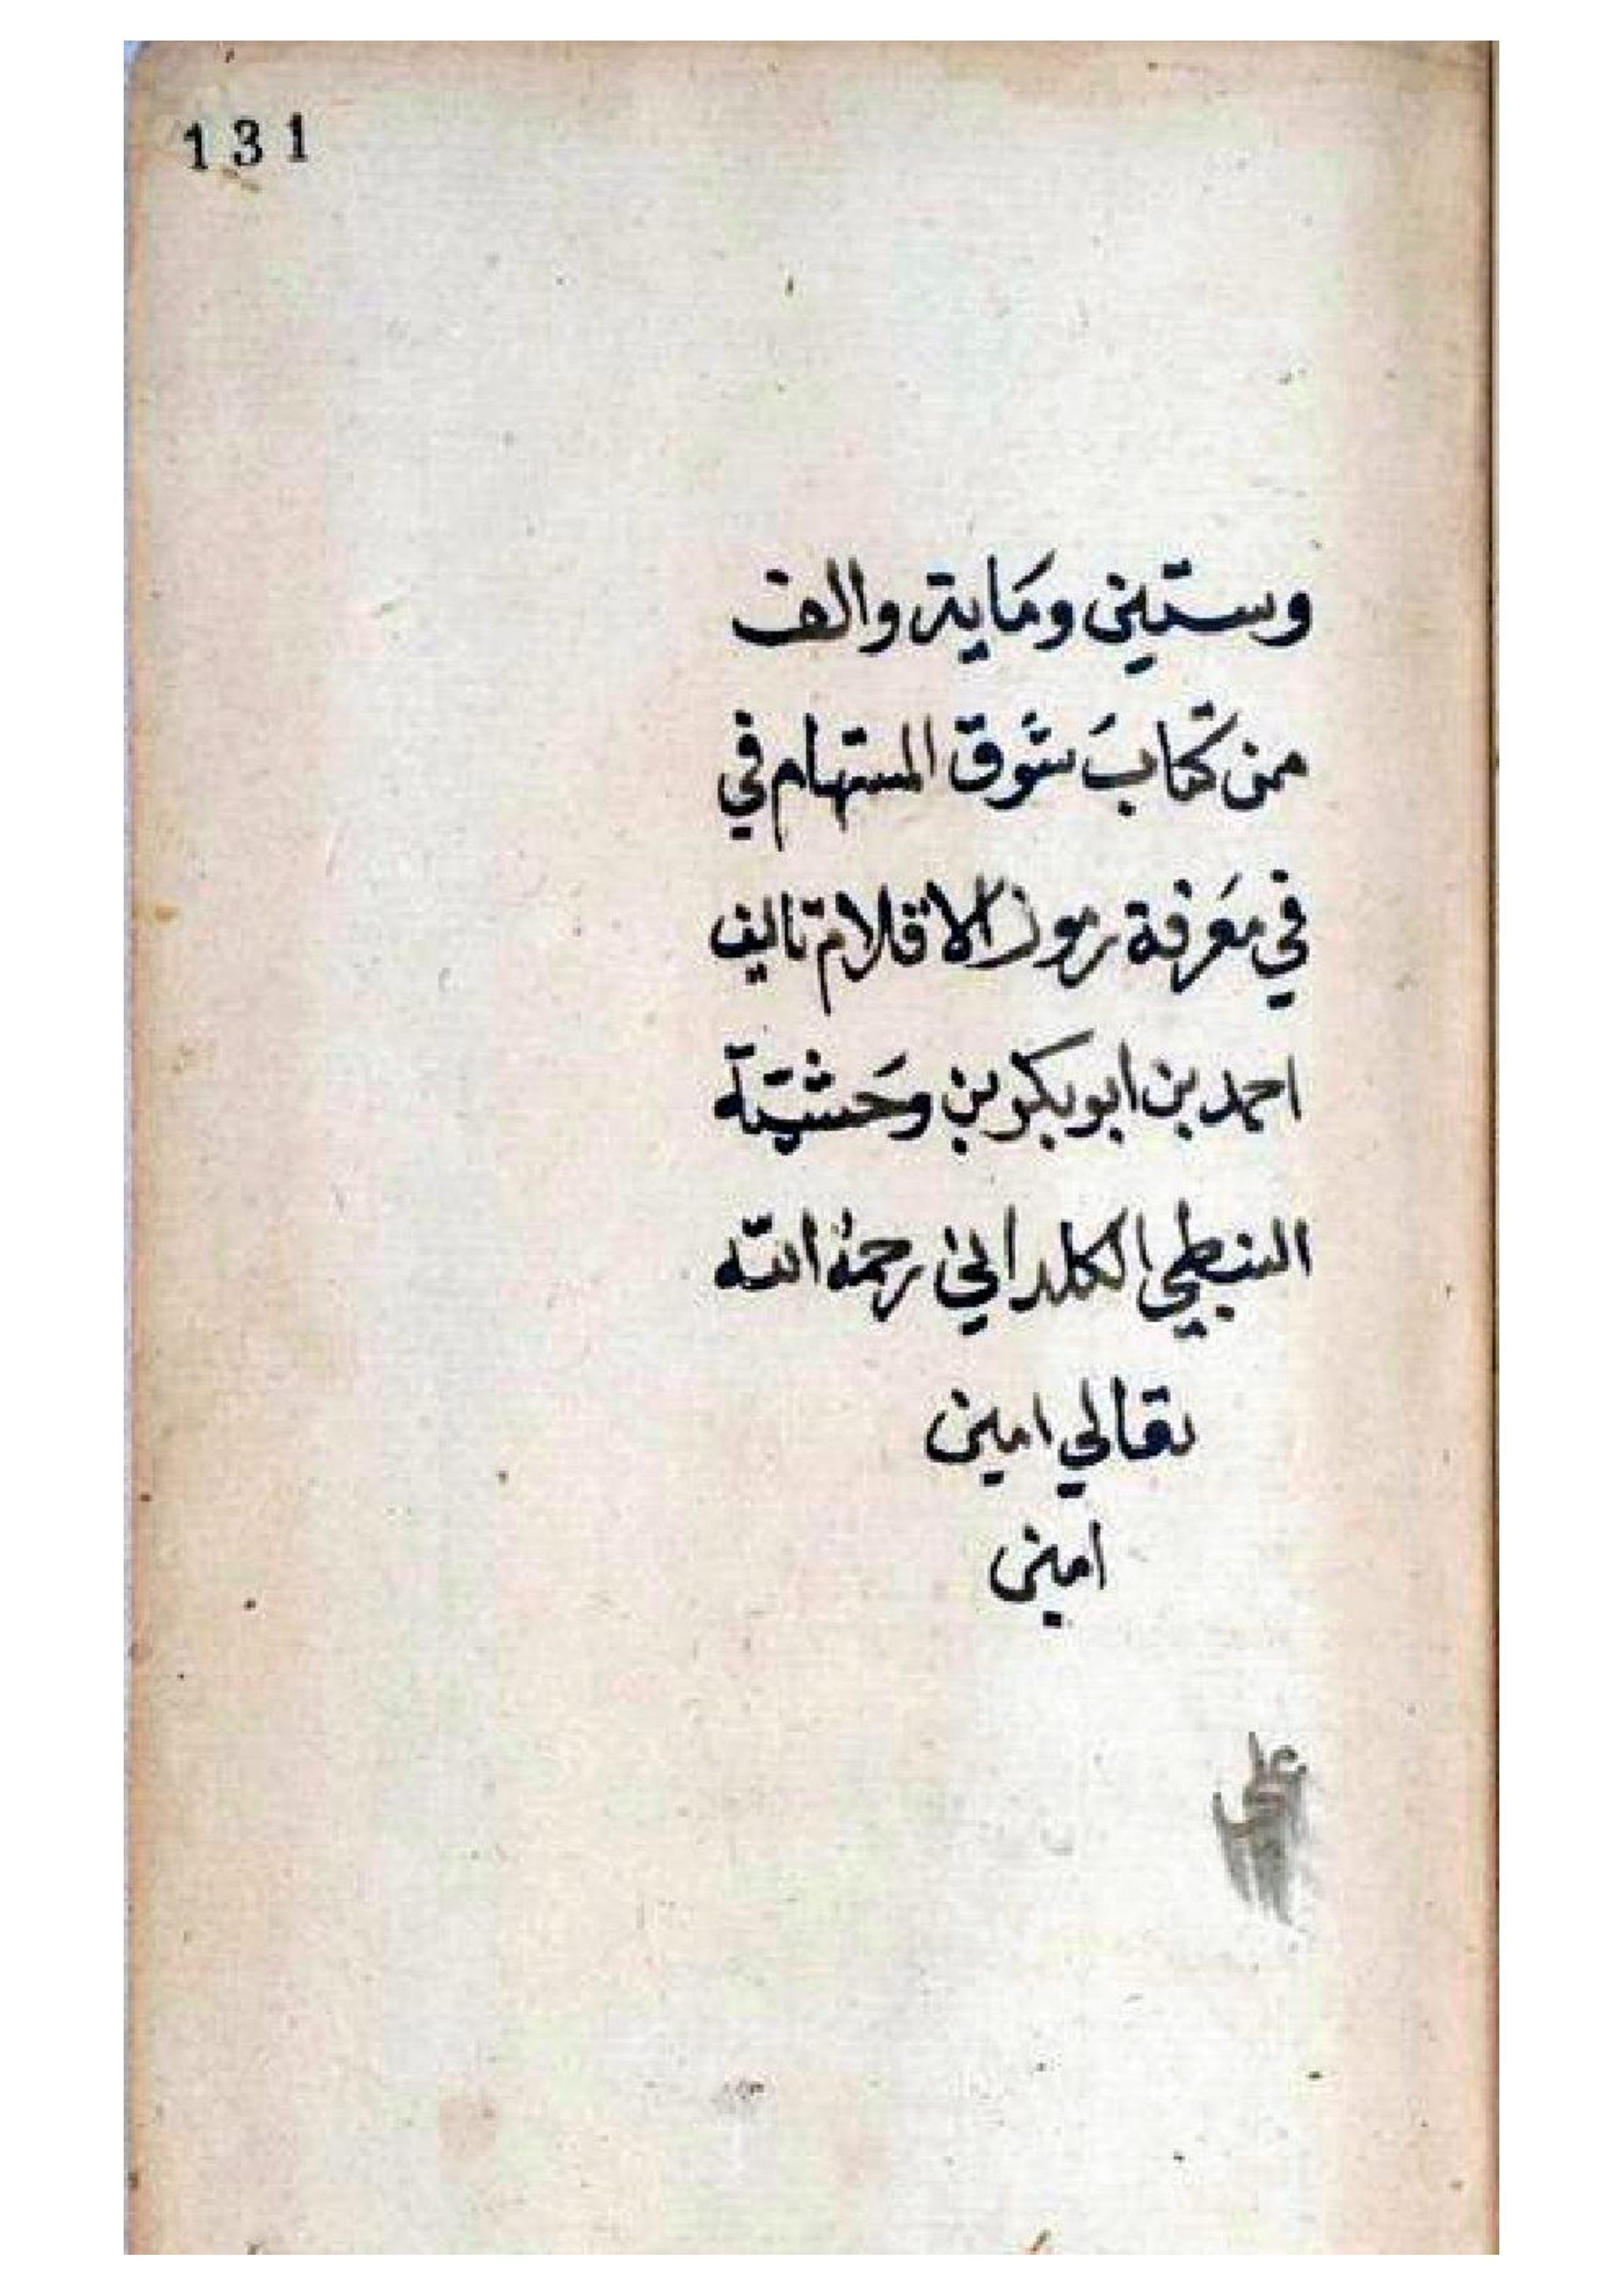 131
وستين ومَاية والف
من كتابَ شوق المستهام في
في مَعرفة رموز الاقلام تاليف
احمد بن ابو بكر بن وحَشيّة
النبطي الكلداني رحمهُ اللّه
تعالي امين
امين